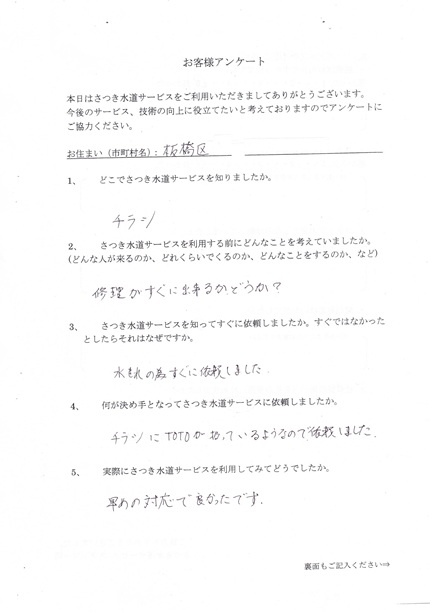 お客様アンケート
本日はさつき水道サービスをご利用いただきましてありがとうございます。
今後のサービス、技術の向上に役立てたいと考えておりますのでアンケートに
ご協力ください。
お住まい（市町村名）：板橋区
1、 どこでさつき水道サービスを知りましたか。
チラシ
2、 さつき水道サービスを利用する前にどんなことを考えていましたか。
(どんな人が来るのか、どれくらいでくるのか、どんなことをするのか、など)
修理がすぐに出来るかどうか？
3、 さつき水道サービスを知ってすぐに依頼しましたか。すぐではなかった
としたらそれはなぜですか。
水もれの為すぐに依頼しました.
4、 何が決め手となってさつき水道サービスに依頼しましたか。
チラシにTOTOが ているようなので依頼しました.
5、 実際にさつき水道サービスを利用してみてどうでしたか。
早めの対応で良かったです.
裏面もご記入ください⇒